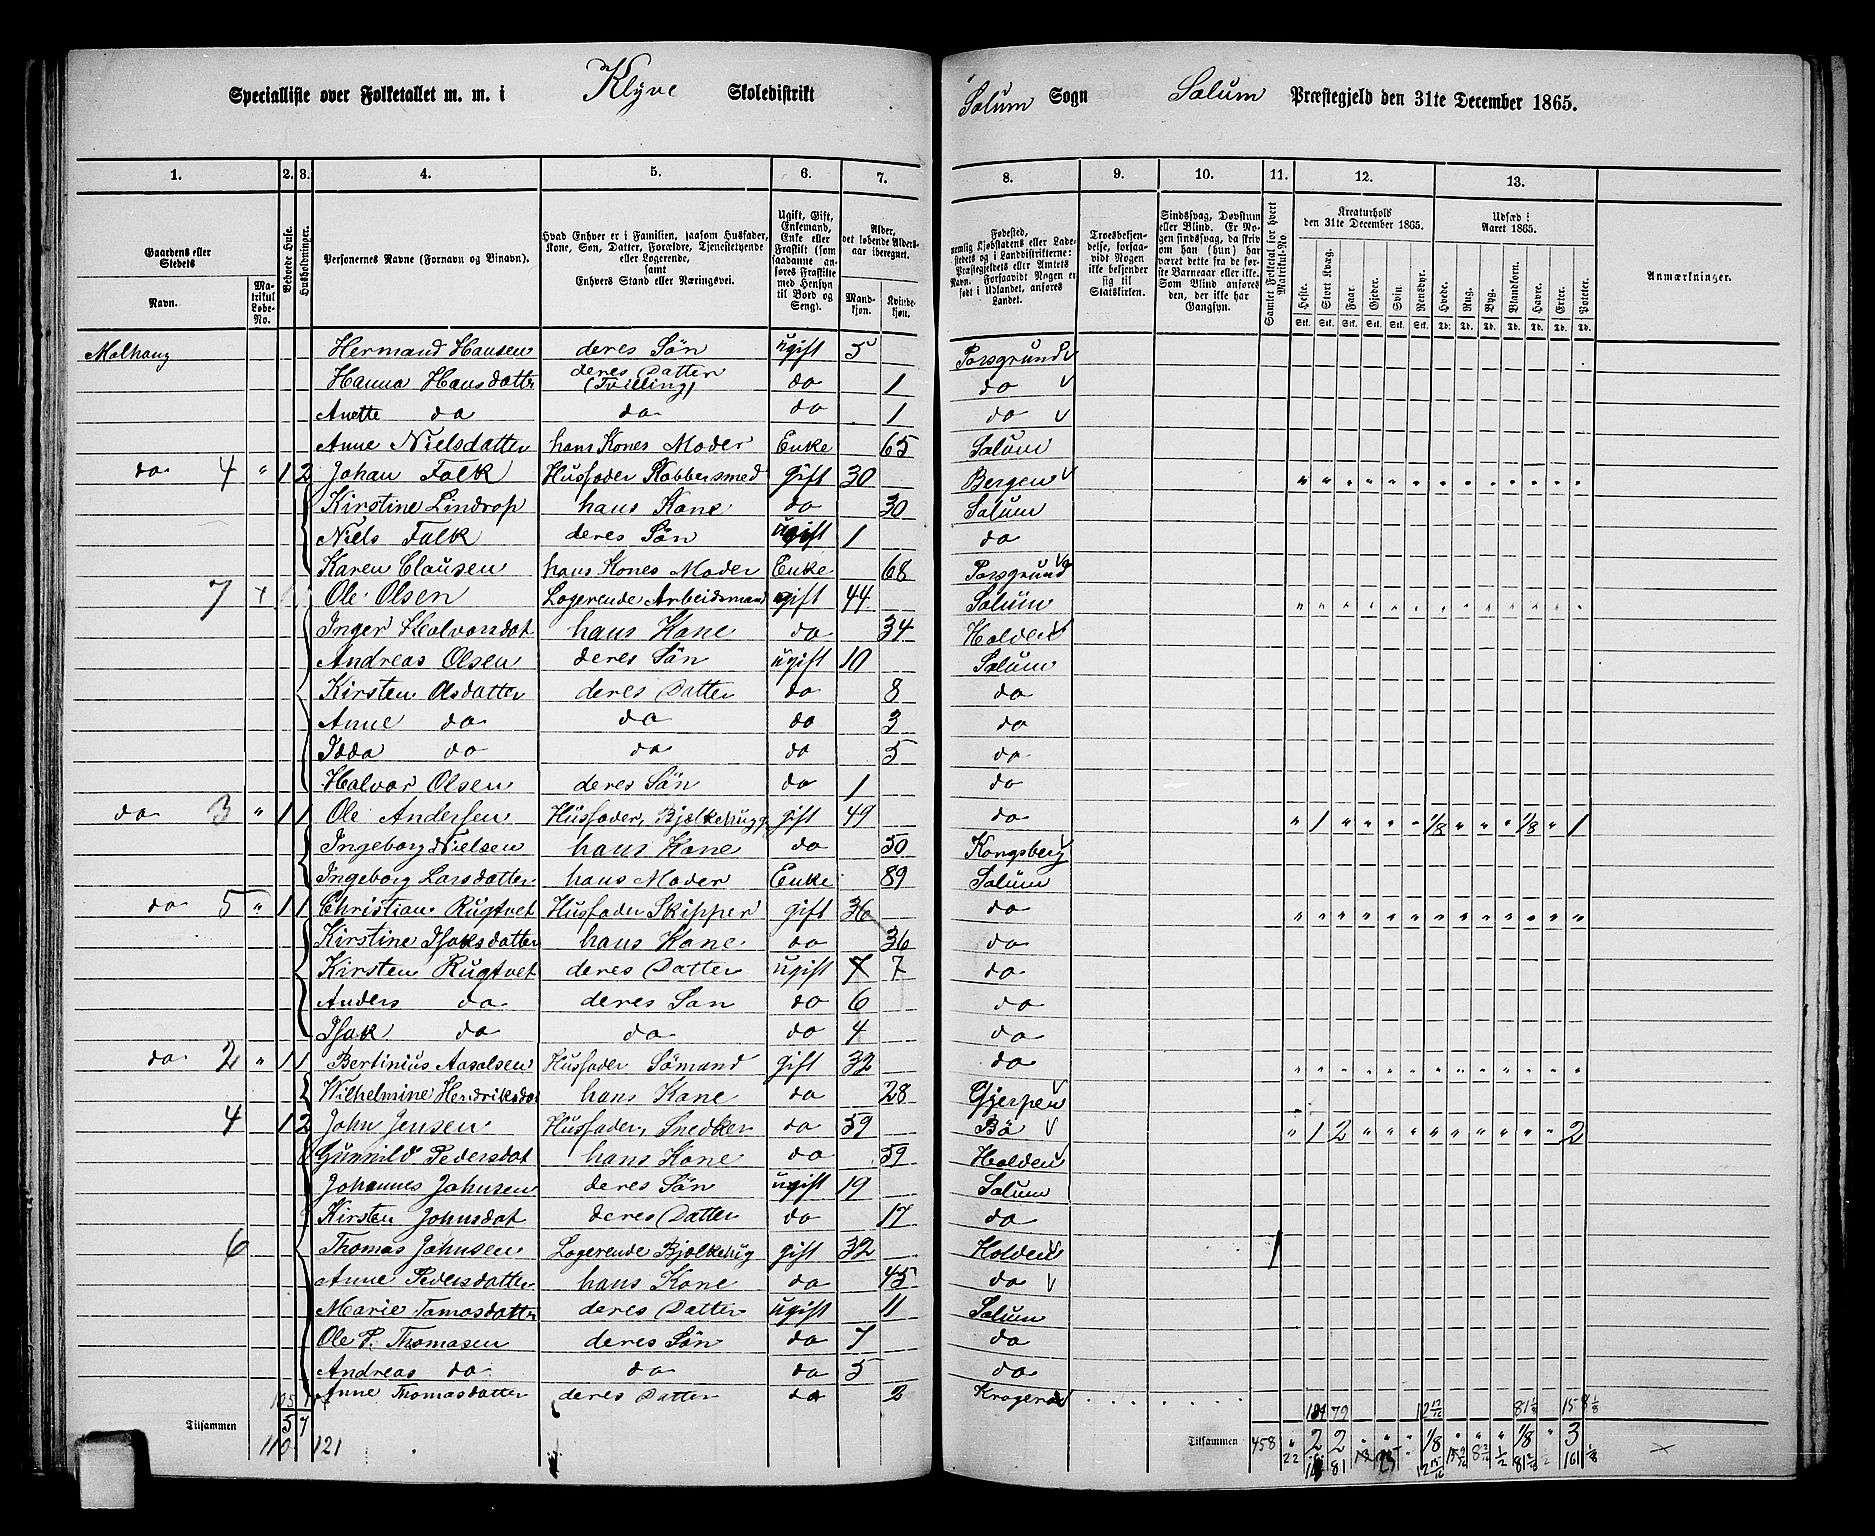 Specialliste over Folketallet m. m. i Klyve Skoledistrikt Solum Sogn Solum Præstegjeld den 31te December 1865.
1. 2. 3. 4. 5. 6. 7. 8. 9. 10. 11. 12. 13.
Gaardens eller Stedets Navn. Matrikul Løbe-No. Beboede Huse. Husholdninger. Personernes Navne (Fornavn og Binavn). Hvad Enhver er i Familien, saasom Husfader, Kone, Søn, Datter, Forældre, Tjenestetyende eller Logerende, samt Enhvers Stand eller Næringsvei. Ugift, Gift, Enkemand, Enke eller Fraskilt (som saadanne anføres Fraskilte med Hensyn til Bord og Seng). Alder, det løbende Aldersaar iberegnet. Mandkjøn. Kvindekjøn.
Fødested, nemlig Kjøbstadens eller Ladestedets og i Landdistrikterne: Præstegjeldets eller Amtets Navn. Forsaavidt Nogen er født i Udlandet, anføres Landet. Troesbekjendelse, forsaavidt Nogen ikke bekjender sig til Statskirken. Sindssvag, Døvstum eller Blind. Er Nogen sindssvag, da skriv om han (hun) har været dette fra de første Barneaar eller ikke. Som Blind anføres den, der ikke har Gangsyn. Samlet Folketal for hvert Matrikul-No. Kreaturhold den 31te December 1865. Heste. Stort Kvæg. Faar. Gjeder. Svin. Rensdyr. Udsæd i Aaret 1865. Hvede. Rug. Byg. Blandkorn. Havre. Erter. Poteter. Anmærkninger.
Molhaug Hermand Hansen deres Søn ugift 5 Porsgrund
Hanna Hansdatter deres Datter (Tvilling) do 1 do
Anette do do do 1 do
Anne Nielsdatter hans Kones Moder Enke 65 Solum
do 4 " 1 2 Johan Falk Husfader Kobbersmed gift 30 Bergen
Kirstine Lindrop hans Kone do 30 Solum
Niels Falk deres Søn ugift 1 do
Karen Clausen hans Kones Moder Enke 68 Porsgrund
7 Ole Olsen Logerende Arbeidsmand gift 44 Solum
Inger Halvorsdat hans Kone do 34 Holden
Andreas Olsen deres Søn ugift 10 Solum
Kirsten Olsdatter deres Datter do 8 do
Anne do do do 3 do
Idda do do do 5 do
Halvor Olsen deres Søn do 1 do
do 3 " 1 1 Ole Andersen Husfader, Bjælkehugg. gift 49 do " 1 " " " " 1/8 " " " 1/8 " 1
Ingeborg Nielsen hans Kone do 50 Kongsberg
Ingeborg Larsdatter hans Moder Enke 89 Solum
do 5 " 1 1 Christian Rugtvet Husfader Skipper gift 36 do
Kirstine Isaksdatter hans Kone do 36 do
Kirsten Rugtvet deres Datter ugift 7 7 do
Anders do deres Søn do 6 do
Isak do do do 4 do
do 2 " 1 1 Bertinius Aasolsen Husfader Sömand gift 32 do
Wilhelmine Hendriksdat hans Kone do 28 Gjerpen
4 1 2 John Jensen Husfader, Snedker do 59 Bö " 1 2 " " " " " " " " " 2
Gunnild Pedersdat hans Kone do 59 Holden
Johannes Johnsen deres Søn ugift 19 Solum
Kirsten Johnsdat deres Datter do 17 do
6 Thomas Johnsen Logerende Bjelkehug gift 32 Holden 1
Anne Pedersdatter hans Kone do 45 do
Marie Tomasdatter deres Datter ugift 11 Solum
Ole P. Thomasen deres Søn do 7 do
Andreas do do do 5 do
Anne Thomasdatter deres Datter do 2 Kragerø
Tilsammen 5 7 Tilsammen 458 " 2 2 " " " 1/8 " " " 1/8 " 3
110 121